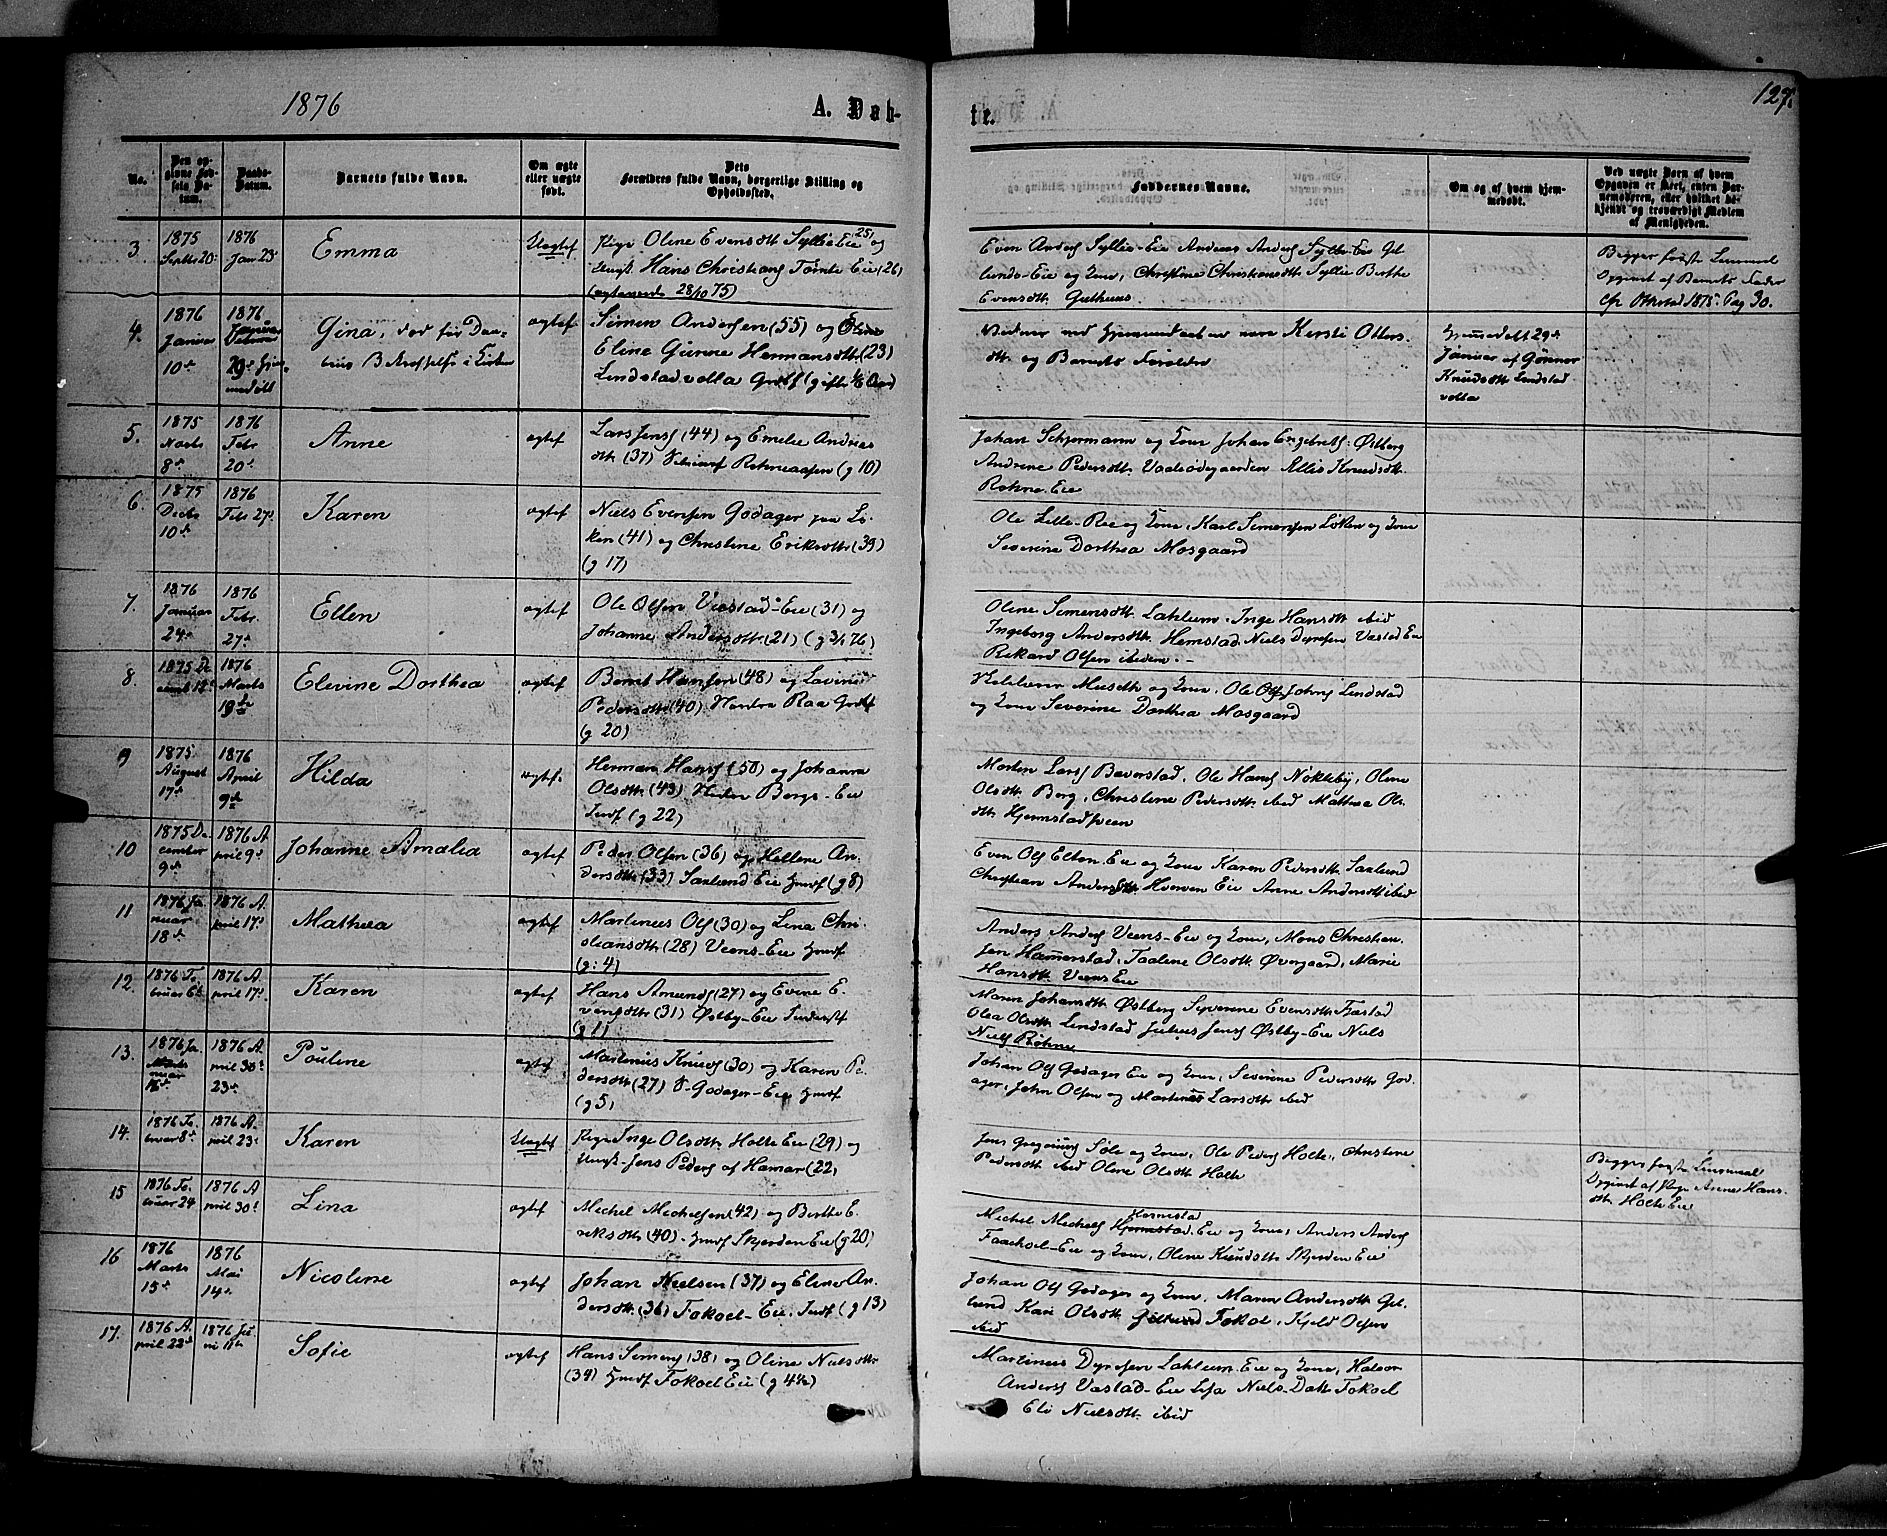 1876
A. Dåb-
te.
127.
No.
Den op-
givne Fød-
sels Da-
tum.
Daabs-
Datum.
Barnets fulde Navn.
Om ægte
eller uægte
født.
Dets
Forældres fulde Navn, borgerlige Stilling og
Opholdssted.
Faddernes Navne.
Om og af hvem hjem-
medøbt.
Ved uægte Børn af hvem
Opgaven er skeet, enten Bar-
nemoderen, eller hvilket be-
kjendt og troværdigt Medlem
af Menigheden.
3.
1875
Septbr 20d
1876
Jan 23d
Emma
Uægtef
Pige Oline Evensdtt Syllie Eie (25) og
Ungk Hans Christians Tømte Eie (26)
(ægteviede 28/10 75)
Even Anders Syllie-Eie Anders Anders Syllie-Eie Gil-
lunds-Eie og Kone, Christine Christiansdtt Syllie Berthe
Evensdtt Gulhuus
Begges første Leiermaal
Opgivet af Barnets Fader
cfr Ottestad 1875 Pag 30.
4.
1876
Januar
10d
1876
Januar
29d Hjem-
medøbt
Gina, død før Daa-
bens Bekræftelse i Kirken
ægtef
Simen Andersen (55) og
Eline Gunne Hermansdtt (23)
Lindstadvolla (gifte
Vidner ved Hjemmedaaben vare Kersti Otters-
dtt og Barnets Forældre
Hjemmedøbt 29d
Januar af Gønner
Knudsdtt Lindstad
volla
5.
1875
Novbr
8d
1876
Febr
20d
Anne
ægtef
Lars Jens (44) og Emelie Andreas
dtt (37) Rohneaasen (g 10)
Johan Schjermann og Kone Johan Engebrets: Østberg
Andrine Pedersdtt Vaalsødegaarden Ellis Knudsdtt
Rohne-Eie
6.
1875
Decbr
10d
1876
Febr 27d
Karen
ægtef
Niels Evensen Godager paa Lø-
ken (41) og Christine Eriksdtr (39)
(g 17)
Ole Lille-Roe og Kone, Karl Simensen Løken og Kone
Severine Dorthea Mosgaard
7.
1876
Januar
24d
1876
Febr.
27d
Ellen
ægtef
Ole Olsen Vestad-Eie (31) og
Johanne Andersdtt (21) (g 3/1 76)
Oline Simensdtt Lahlum, Inge Hansdtt ibid
Ingeborg Andersdtt Hemstad Niels Dyresen Vestad Eie
Rikard Olsen ibidem. -
8.
1875 De
cembr 12d
1876
Marts
19de
Elevine Dorthea
ægtef
Bernt Hansen (48) og Lovine
Pedersdtr (40) Raa
(g 20)
Museth og Kone, Ole Ols Johns Lindstad
og Kone Severine Dorthea Mosgaard
9
1875
August
17d
1876
April
9de
Hilda
ægtef.
Herman Hans (50) og Johanne
Olsdtt (43) Berg-Eie
Indf (g 22)
Morten Lars Beverstad, Ole Hans Nokleby, Oline
Olsdtt Berg, Christine Pedersdtt ibid Mathea Ols
dtt Hjemstadsveen
10
1875 De
cember
9d
1876 A
pril 9d
Johanne Amalia
ægtef
Peder Olsen (36) og Hellene An-
dersdtr (33) Saxlund Eie Hmsf (g 8)
Even Ols Elton-Eie og Kone Karen Pedersdtt Saxlund
Christian Anders Horven Eie Anne Andersdtt ibid
11
1876 Ja
nuar
18d
1876 A
pril 17d
Mathea
ægtef
Martinus Ols (30) og Lina Chri-
stiansdtr (28) Veens-Eie Hmsf
(g: 4)
Anders Anders Veens-Eie og Kone, Mons Christian-
sen Hamerstad, Taalene Olsdtt Øvergaard, Marie
Hansdtt Veens Eie
12.
1876 Fe
bruar 6d
1876 A
pril 17d
Karen
ægtef
Hans Amunds (27) og Evine E-
vensdtr (31) Østby-Eie Inderst
(g 1)
Maren Johansdtt Østberg Syverine Evensdtt Fjestad
Olea Olsdtt Lindstad Julius Jens Østby-Eie Niels
Niels Rohne
13.
1876 Ja
nuar
16d
1876 A
pril 30d
23d
Pouline
ægtef
Martinus Knuds (30) og Karen Pe-
dersdtr (27) S-Godager-Eie Hmsf
(g 5)
Johan Ols Godager Eie og Kone, Severine Pedersdtt God-
ager, John Olsen og Martinus Larsdtt ibid
14.
1876 Fe
bruar 8d
1876 A
pril 23d
Karen
Uægtef
Pige Inge Olsdtt Holte Eie (29) og
Ungk Jens Peders af Hamar (22)
Jens Gregorius Sole og Kone, Ole Peders Holte, Christine
Pedersdtt ibid Oline Olsdtt Holte
Begges første Leiermaal
Opgivet af Pige Anne Hans
dtt Holte Eie
15
1876 Fe
bruar 24
1876 A
pril 30d
Lina
ægtef
Michel Michelsen (42) og Berthe E-
riksdtr (40) Hmsf Skjerden Eie (g 20)
Michel Michels Hjemstad Hemestad Eie og Kone, Anders Anders
Faackoel-Eie og Kone, Oline Knudsdtt Skjerden Eie
16
1876
Marts
15d
1876
Mai
14d
Nicoline
ægtef
Johan Nielsen (37) og Eline An-
dersdtt (36) Fokoel-Eie. Indf (g 13)
Johan Ols Godager og Kone, Maren Andersdtt Gil-
lund Kari Olsdtt Gillund Fokol, Kjeld Olsen
ibid
17.
1876 A
pril 22d
1876 Ju
ni 11te
Sofie
ægtef
Hans Simens (38) og Oline Nielsdtt
(34) Hmsf Fokoel Eie (g 4½)
Martinus Dyresen Lahlum-Eie og Kone, Halvor
Anders Vestad-Eie Lisa Niels-Datt Fokoel
Eli Nielsdtt ibid